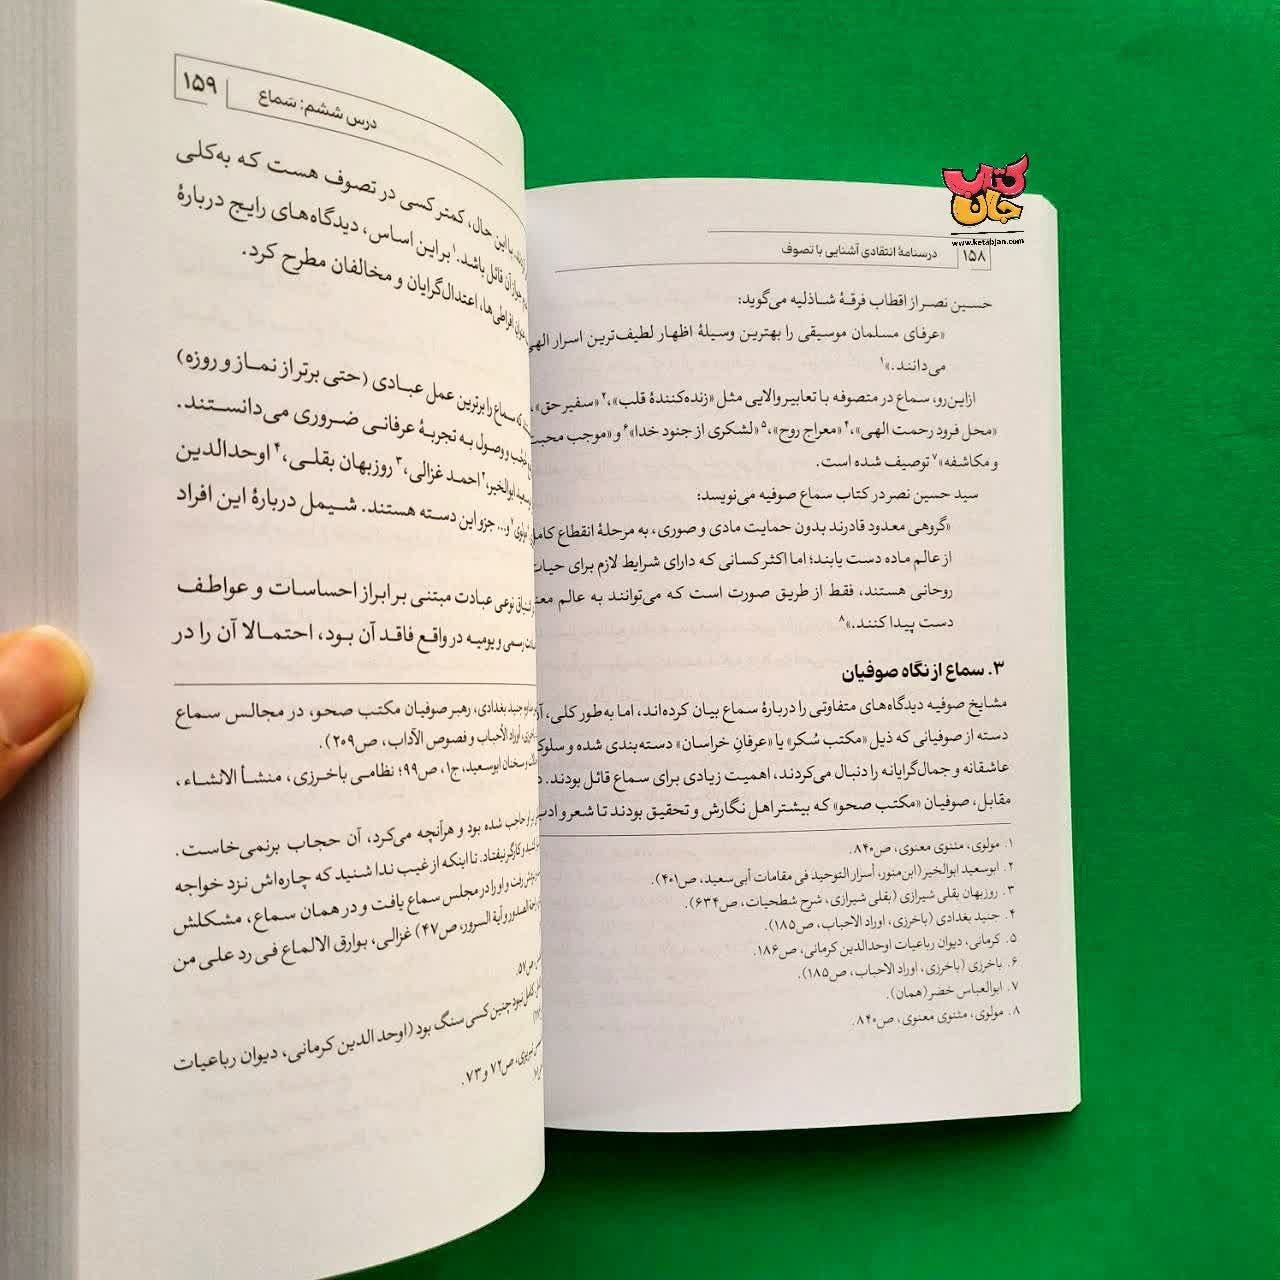 کتاب جان
www.ketabjan.com
۱۵۸ درسنامهٔ انتقادی آشنایی با تصوف
حسین نصر از اقطاب فرقهٔ شاذلیه می‌گوید:
«عرفای مسلمان موسیقی را بهترین وسیلهٔ اظهار لطیف‌ترین اسرار الهی
می‌دانند.»۱
ازاین‌رو، سماع در متصوفه با تعابیر والایی مثل «زنده‌کنندهٔ قلب»،۲ «سفیر حق»،
«محل فرود رحمت الهی»،۴ «معراج روح»،۵ «لشکری از جنود خدا»۶ و «موجب محبت
و مکاشفه»۷ توصیف شده است.
سید حسین نصر در کتاب سماع صوفیه می‌نویسد:
«گروهی معدود قادرند بدون حمایت مادی و صوری، به مرحلهٔ انقطاع کامل
از عالم ماده دست یابند؛ اما اکثر کسانی که دارای شرایط لازم برای حیات
روحانی هستند، فقط از طریق صورت است که می‌توانند به عالم
دست پیدا کنند.»۸
۳. سماع از نگاه صوفیان
مشایخ صوفیه دیدگاه‌های متفاوتی را دربارهٔ سماع بیان کرده‌اند، اما به‌طور کلی، آن
دسته از صوفیانی که ذیل «مکتب سُکر» یا «عرفانِ خراسان» دسته‌بندی شده و سلوک
عاشقانه و جمال‌گرایانه را دنبال می‌کردند، اهمیت زیادی برای سماع قائل بودند. در
مقابل، صوفیان «مکتب صحو» که بیشتر اهل نگارش و تحقیق بودند تا شعر و ادب
۱. مولوی، مثنوی معنوی، ص۸۴۰.
۲. ابوسعید ابوالخیر (ابن‌منور، أسرار التوحید فی مقامات أبی‌سعید، ص۴۰۱).
۳. روزبهان بقلی شیرازی (بقلی شیرازی، شرح شطحیات، ص۶۳۴).
۴. جنید بغدادی (باخرزی، اوراد الاحباب، ص۱۸۵).
۵. کرمانی، دیوان رباعیات اوحدالدین کرمانی، ص۱۸۶.
۶. باخرزی (باخرزی، اوراد الاحباب، ص۱۸۵).
۷. ابوالعباس خضر (همان).
۸. مولوی، مثنوی معنوی، ص۸۴۰.
درس ششم: سَماع ۱۵۹
با این حال، کمتر کسی در تصوف هست که به‌کلی
جواز آن قائل باشد.۱ بر این اساس، دیدگاه‌های رایج دربارهٔ
افراطی‌ها، اعتدال‌گرایان و مخالفان مطرح کرد.
که سماع را برترین عمل عبادی (حتی برتر از نماز و روزه)
و وصول به تجربهٔ عرفانی ضروری می‌دانستند.
ابوالخیر،۲ احمد غزالی،۳ روزبهان بقلی،۴ اوحدالدین
و... جزو این دسته هستند. شیمل دربارهٔ این افراد
نوعی عبادت مبتنی بر ابراز احساسات و عواطف
رسمی و یومیه در واقع فاقد آن بود، احتمالا آن را در
جنید بغدادی، رهبر صوفیان مکتب صحو، در مجالس سماع
اوراد الأحباب و فصوص الآداب، ص۲۰۹).
و سخنان ابوسعید، ج۱، ص۹۹؛ نظامی باخرزی، منشأ الانشاء،
حاجب شده بود و هرآنچه می‌کرد، آن حجاب برنمی‌خاست.
و کارگر نیفتاد. تا اینکه از غیب ندا شنید که چاره‌اش نزد خواجه
رفت و او را در مجلس سماع یافت و در همان سماع، مشکلش
الصدور و آیة السرور، ص۴۷) غزالی، بوارق الالماع فی رد علی من
ص۵۷.
کامل نبود چنین کسی سنگ بود (اوحد الدین کرمانی، دیوان رباعیات
ص۷۲ و ۷۳.